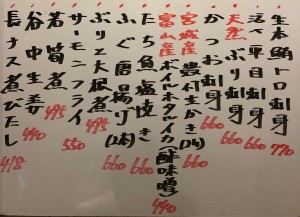 生本鮪トロ刺身 770
活〆平目刺身 660
天然ぶり刺身 660
かつお刺身 660
宮城産殻付生かき(1ヶ)
富山産ボイルホタルイカ(酢味噌) 440
たち魚塩焼き 660
ふぐ唐揚げ(2本) 660
ぶり大根煮
サーモンフライ 550
若筍煮 495
谷中生姜 440
長ナス煮びたし 418